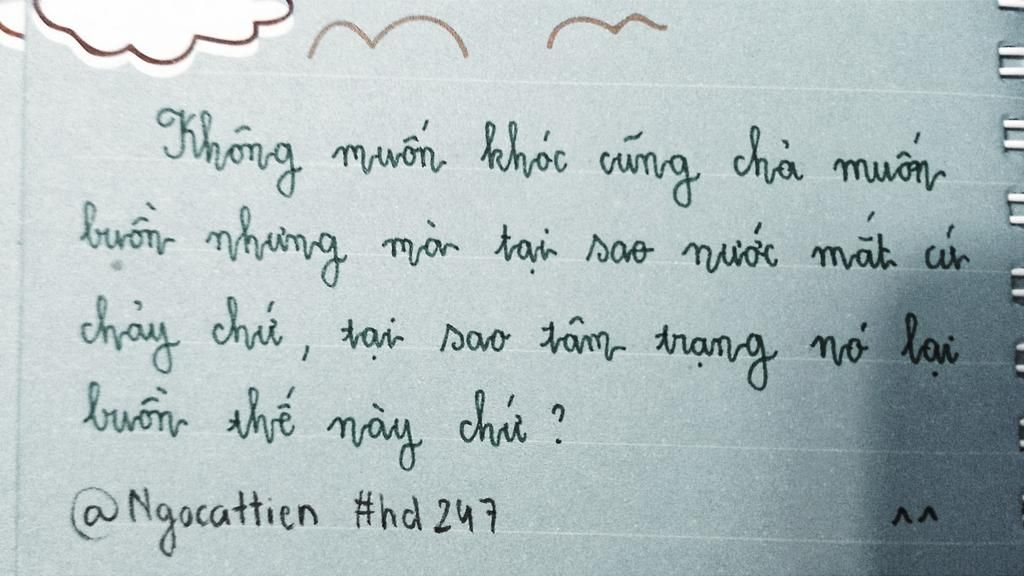 Không muốn khóc cũng chả muốn
buồn nhưng mà tại sao nước mắt cứ
chảy chứ, tại sao tâm trạng nó lại
buồn thế này chứ?
@Ngocattien #hd247 ^^